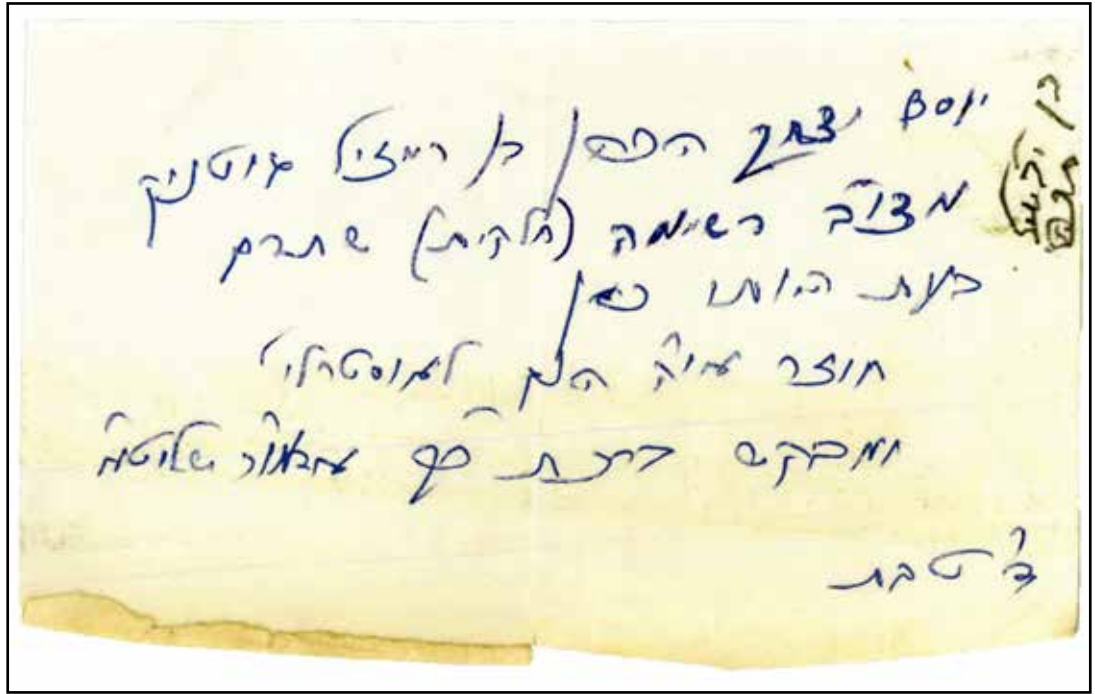 יוסף יצחק הכהן בן רייזיל גוטניק
מצו"ב רשימה (חלקית) שתרם
בעת היותו כאן
חוזר אי"ה היום לאוסטרלי'
ומבקש ברכת כ"ק אדמו"ר שליט"א
ד' טבת